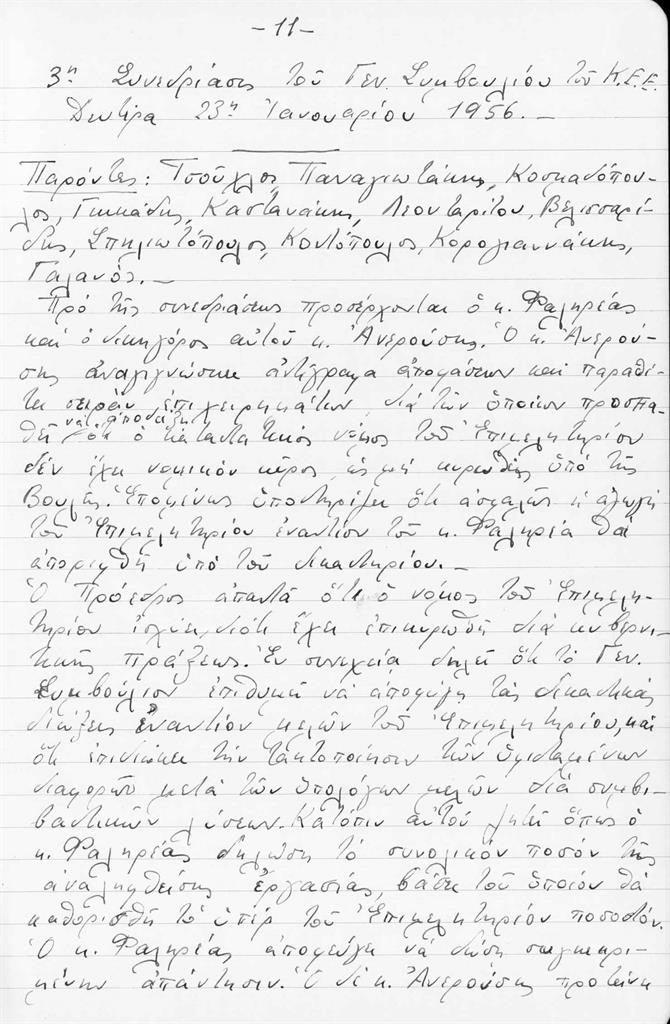 - 11 -
3η Συνεδρίασις τοῦ Γεν. Συμβουλίου τοῦ Κ.Ε.Ε.
Δευτέρα 23η Ἰανουαρίου 1956. -
Παρόντες: Τσοῦχλος, Παναγιωτάκης, Κοσμαδόπου-
λος, Γικκάδης, Καστανάκης, Λεονταρίτου, Βελισσαρί-
δης, Σπηλιωτόπουλος, Κοντόπουλος, Κορογιαννάκης,
Γαλανός. -
Πρό τῆς συνεδριάσεως προσέρχονται ὁ κ. Φαληρέας
καί ὁ δικηγόρος αὐτοῦ κ. Ἀνερούσης. Ὁ κ. Ἀνερού-
σης ἀναγιγνώσκει ἀντίγραφα ἀποφάσεων καί παραθέ-
τει σειράν ἐπιχειρημάτων, διά τῶν ὁποίων προσπα-
θεῖ νά ἀποδείξῃ ὅτι ὁ καταστατικός νόμος τοῦ Ἐπιμελητηρίου
δέν ἔχει νομικόν κῦρος, ὡς μή κυρωθείς ὑπό τῆς
Βουλῆς. Ἑπομένως ὑποστηρίζει ὅτι ἀσφαλῶς ἡ ἀγωγή
τοῦ Ἐπιμελητηρίου ἐναντίον τοῦ κ. Φαληρέα θά
ἀπορριφθῆ ὑπό τοῦ δικαστηρίου. -
Ὁ Πρόεδρος ἀπαντᾶ ὅτι ὁ νόμος τοῦ Ἐπιμελη-
τηρίου ἰσχύει, διότι ἔχει ἐπικυρωθῆ διά κυβερνη-
τικῆς πράξεως. Ἐν συνεχείᾳ δηλεῖ ὅτι τό Γεν.
Συμβούλιον ἐπιθυμεῖ νά ἀποφύγῃ τάς δικαστικάς
διώξεις ἐναντίον μελῶν τοῦ Ἐπιμελητηρίου, καί
ὅτι ἐπιδιώκει τήν τακτοποίησιν τῶν ὑφισταμένων
διαφορῶν μετά τῶν ὑπολόγων μελῶν διά συμβι-
βαστικῶν λύσεων. Κατόπιν αὐτοῦ ζητεῖ ὅπως ὁ
κ. Φαληρέας δηλώσῃ τό συνολικόν ποσόν τῆς
ἀναληφθείσης ἐργασίας, βάσει τοῦ ὁποίου θά
καθορισθῆ τό ὑπέρ τοῦ Ἐπιμελητηρίου ποσοστόν.
Ὁ κ. Φαληρέας ἀποφεύγει νά δώσῃ συγκεκρι-
μένην ἀπάντησιν. Ὁ δέ κ. Ἀνερούσης προτείνει